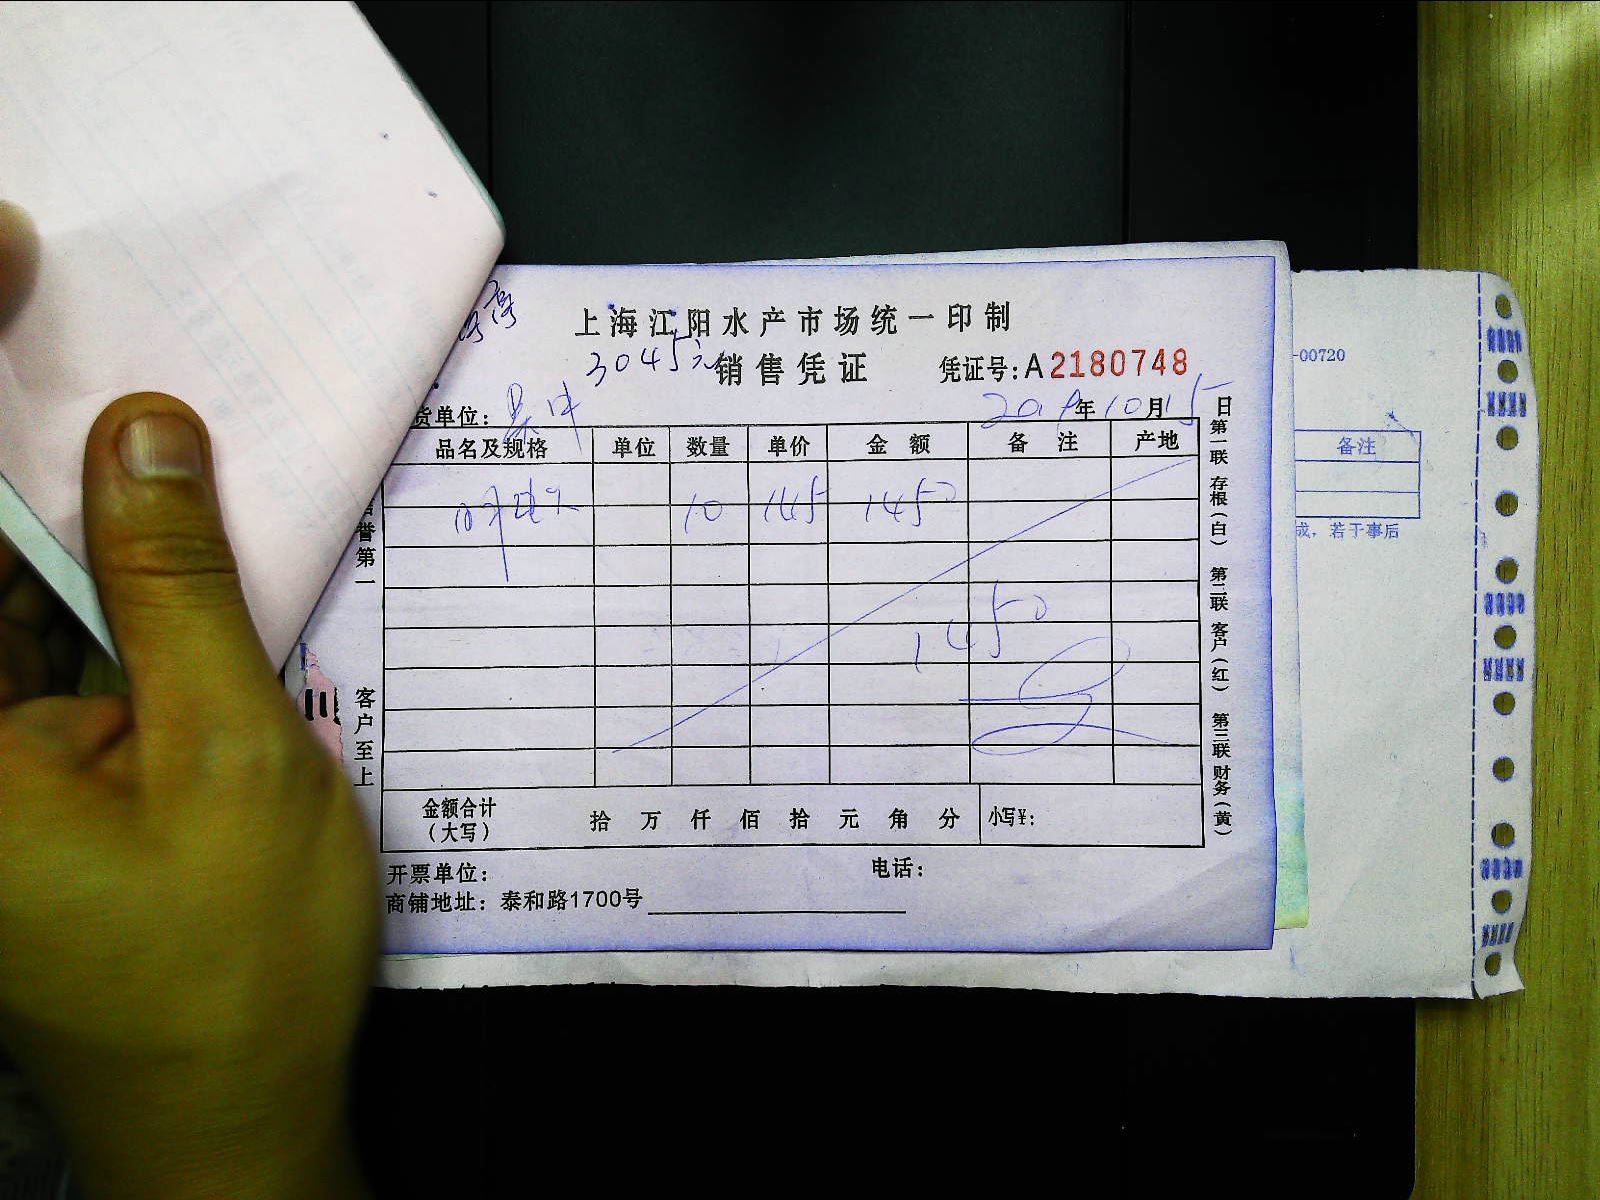 上海江阳水产市场统一印制
3045元
销售凭证
凭证号:A2180748
货单位:
2019年10月15日
品名及规格 单位 数量 单价 金额 备注 产地
10 145 1450
1450
金额合计(大写) 拾 万 仟 佰 拾 元 角 分 小写¥:
开票单位: 电话:
商铺地址: 泰和路1700号
誉第一 客户至上
第一联 存根(白) 第二联 客户(红) 第三联 财务(黄)
-00720
备注
成，若于事后